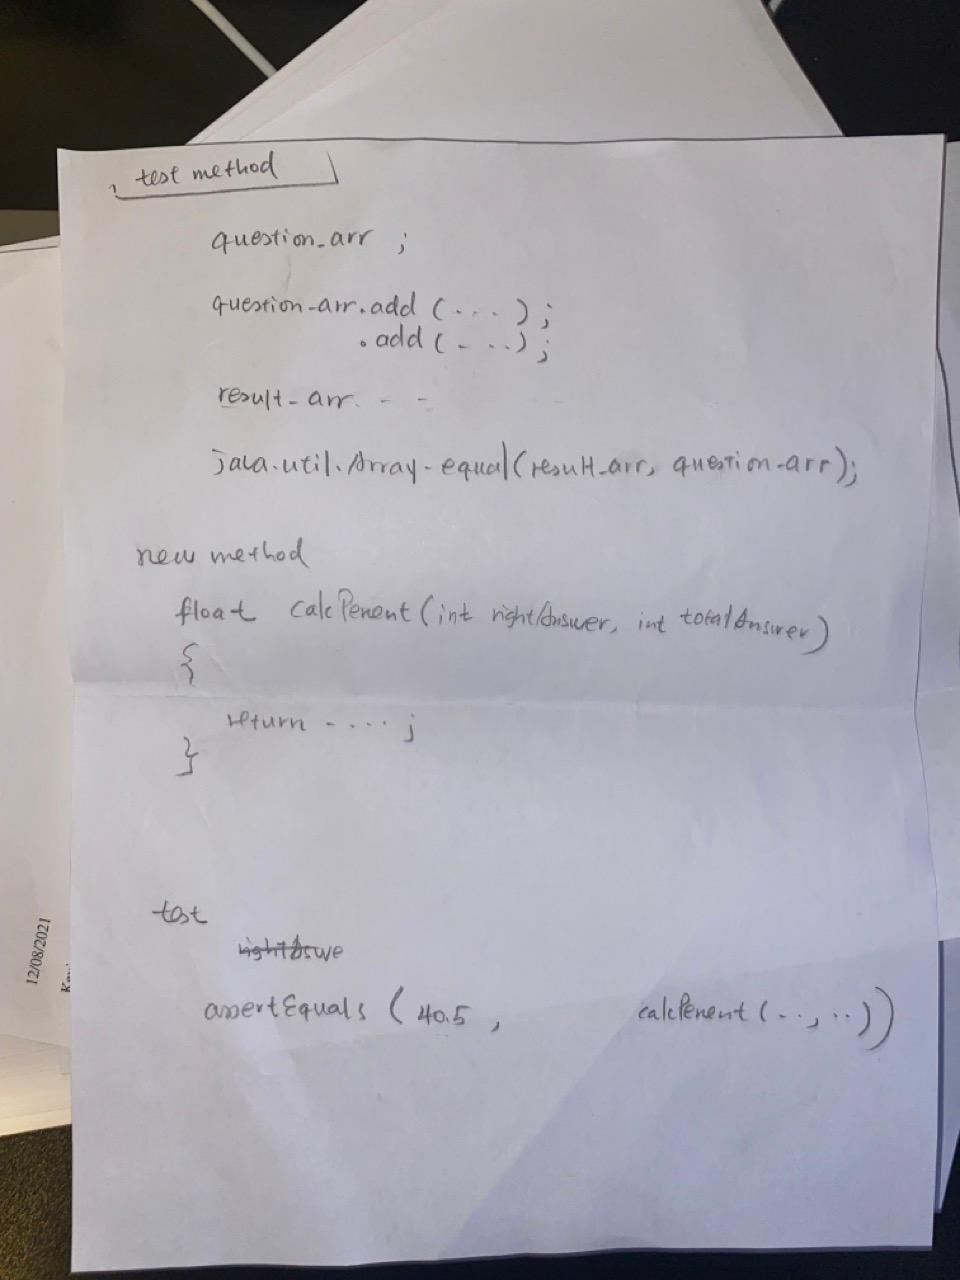 test method
question_arr ;
question-arr.add (....) ;
.add (- ...) ;
result_arr. - -
java.util.Array-equal(result_arr, question-arr);
new method
float calcPercent (int rightAnswer, int totalAnswer)
{
return - .... ;
}
test
rightAswe
assertEquals ( 40.5 , calcPercent (..,..))
12/08/2021